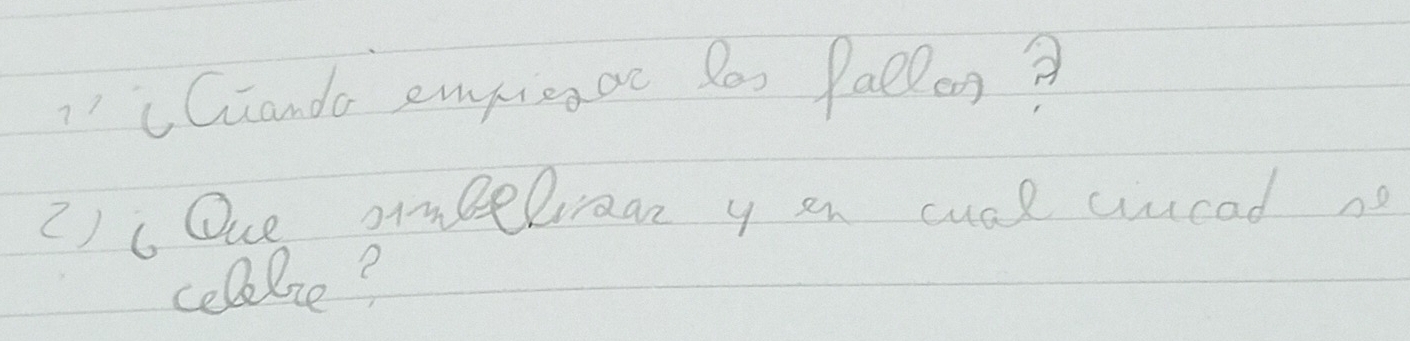 1) ¿Cuando empiezar las fallas?
2) ¿Que simbelizar y en cual ciucad se
celebre?